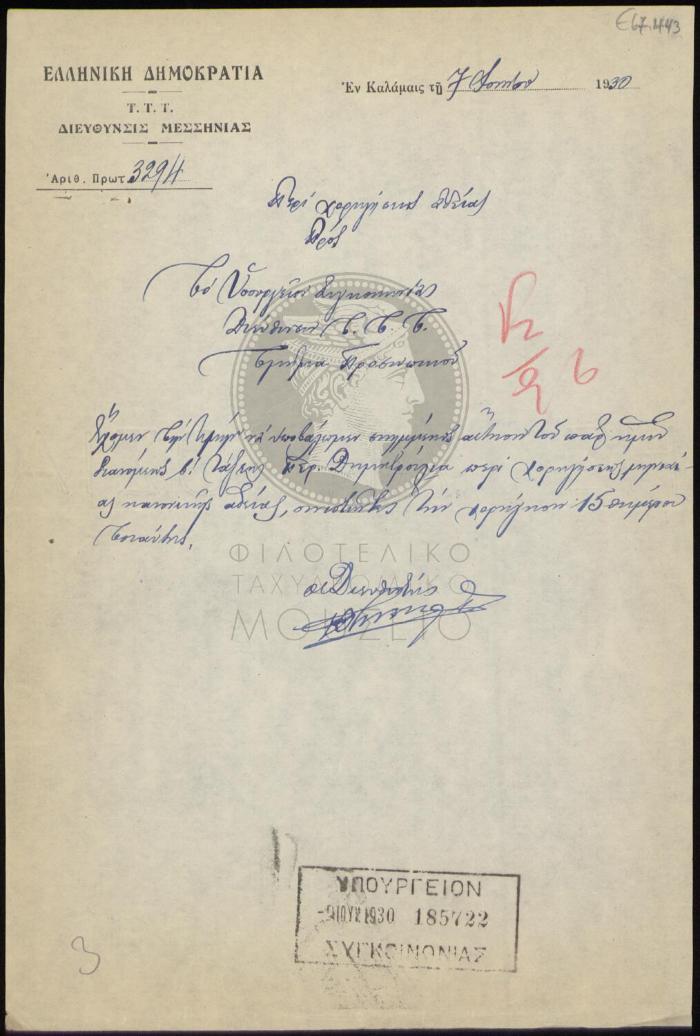 Ε67.443
ΕΛΛΗΝΙΚΗ ΔΗΜΟΚΡΑΤΙΑ
Τ. Τ. Τ.
ΔΙΕΥΘΥΝΣΙΣ ΜΕΣΣΗΝΙΑΣ
Ἀριθ. Πρωτ. 3294
Ἐν Καλάμαις τῇ 7 Ἰουνίου 1930
Περί χορηγήσεως ἀδείας
Πρός
Τό Ὑπουργεῖον Συγκοινωνίας
Διεύθυνσιν Τ. Τ. Τ.
Τμῆμα Προσωπικοῦ
Ἔχομεν τήν τιμήν νά ὑποβάλωμεν συνημμένως αἴτησιν τοῦ παρ' ἡμῖν
διανομέως β' τάξεως περί χορηγήσεως
ας κανονικῆς ἀδείας, συνιστῶντες τήν χορήγησιν 15 θημέρου
τοιαύτης.
Ὁ Διευθυντής
ΦΙΛΟΤΕΛΙΚΟ
ΤΑΧΥΔΡΟΜΙΚΟ
ΜΟΥΣΕΙΟ
ΥΠΟΥΡΓΕΙΟΝ
-9 ΙΟΥΝ 1930 185722
ΣΥΓΚΟΙΝΩΝΙΑΣ
3